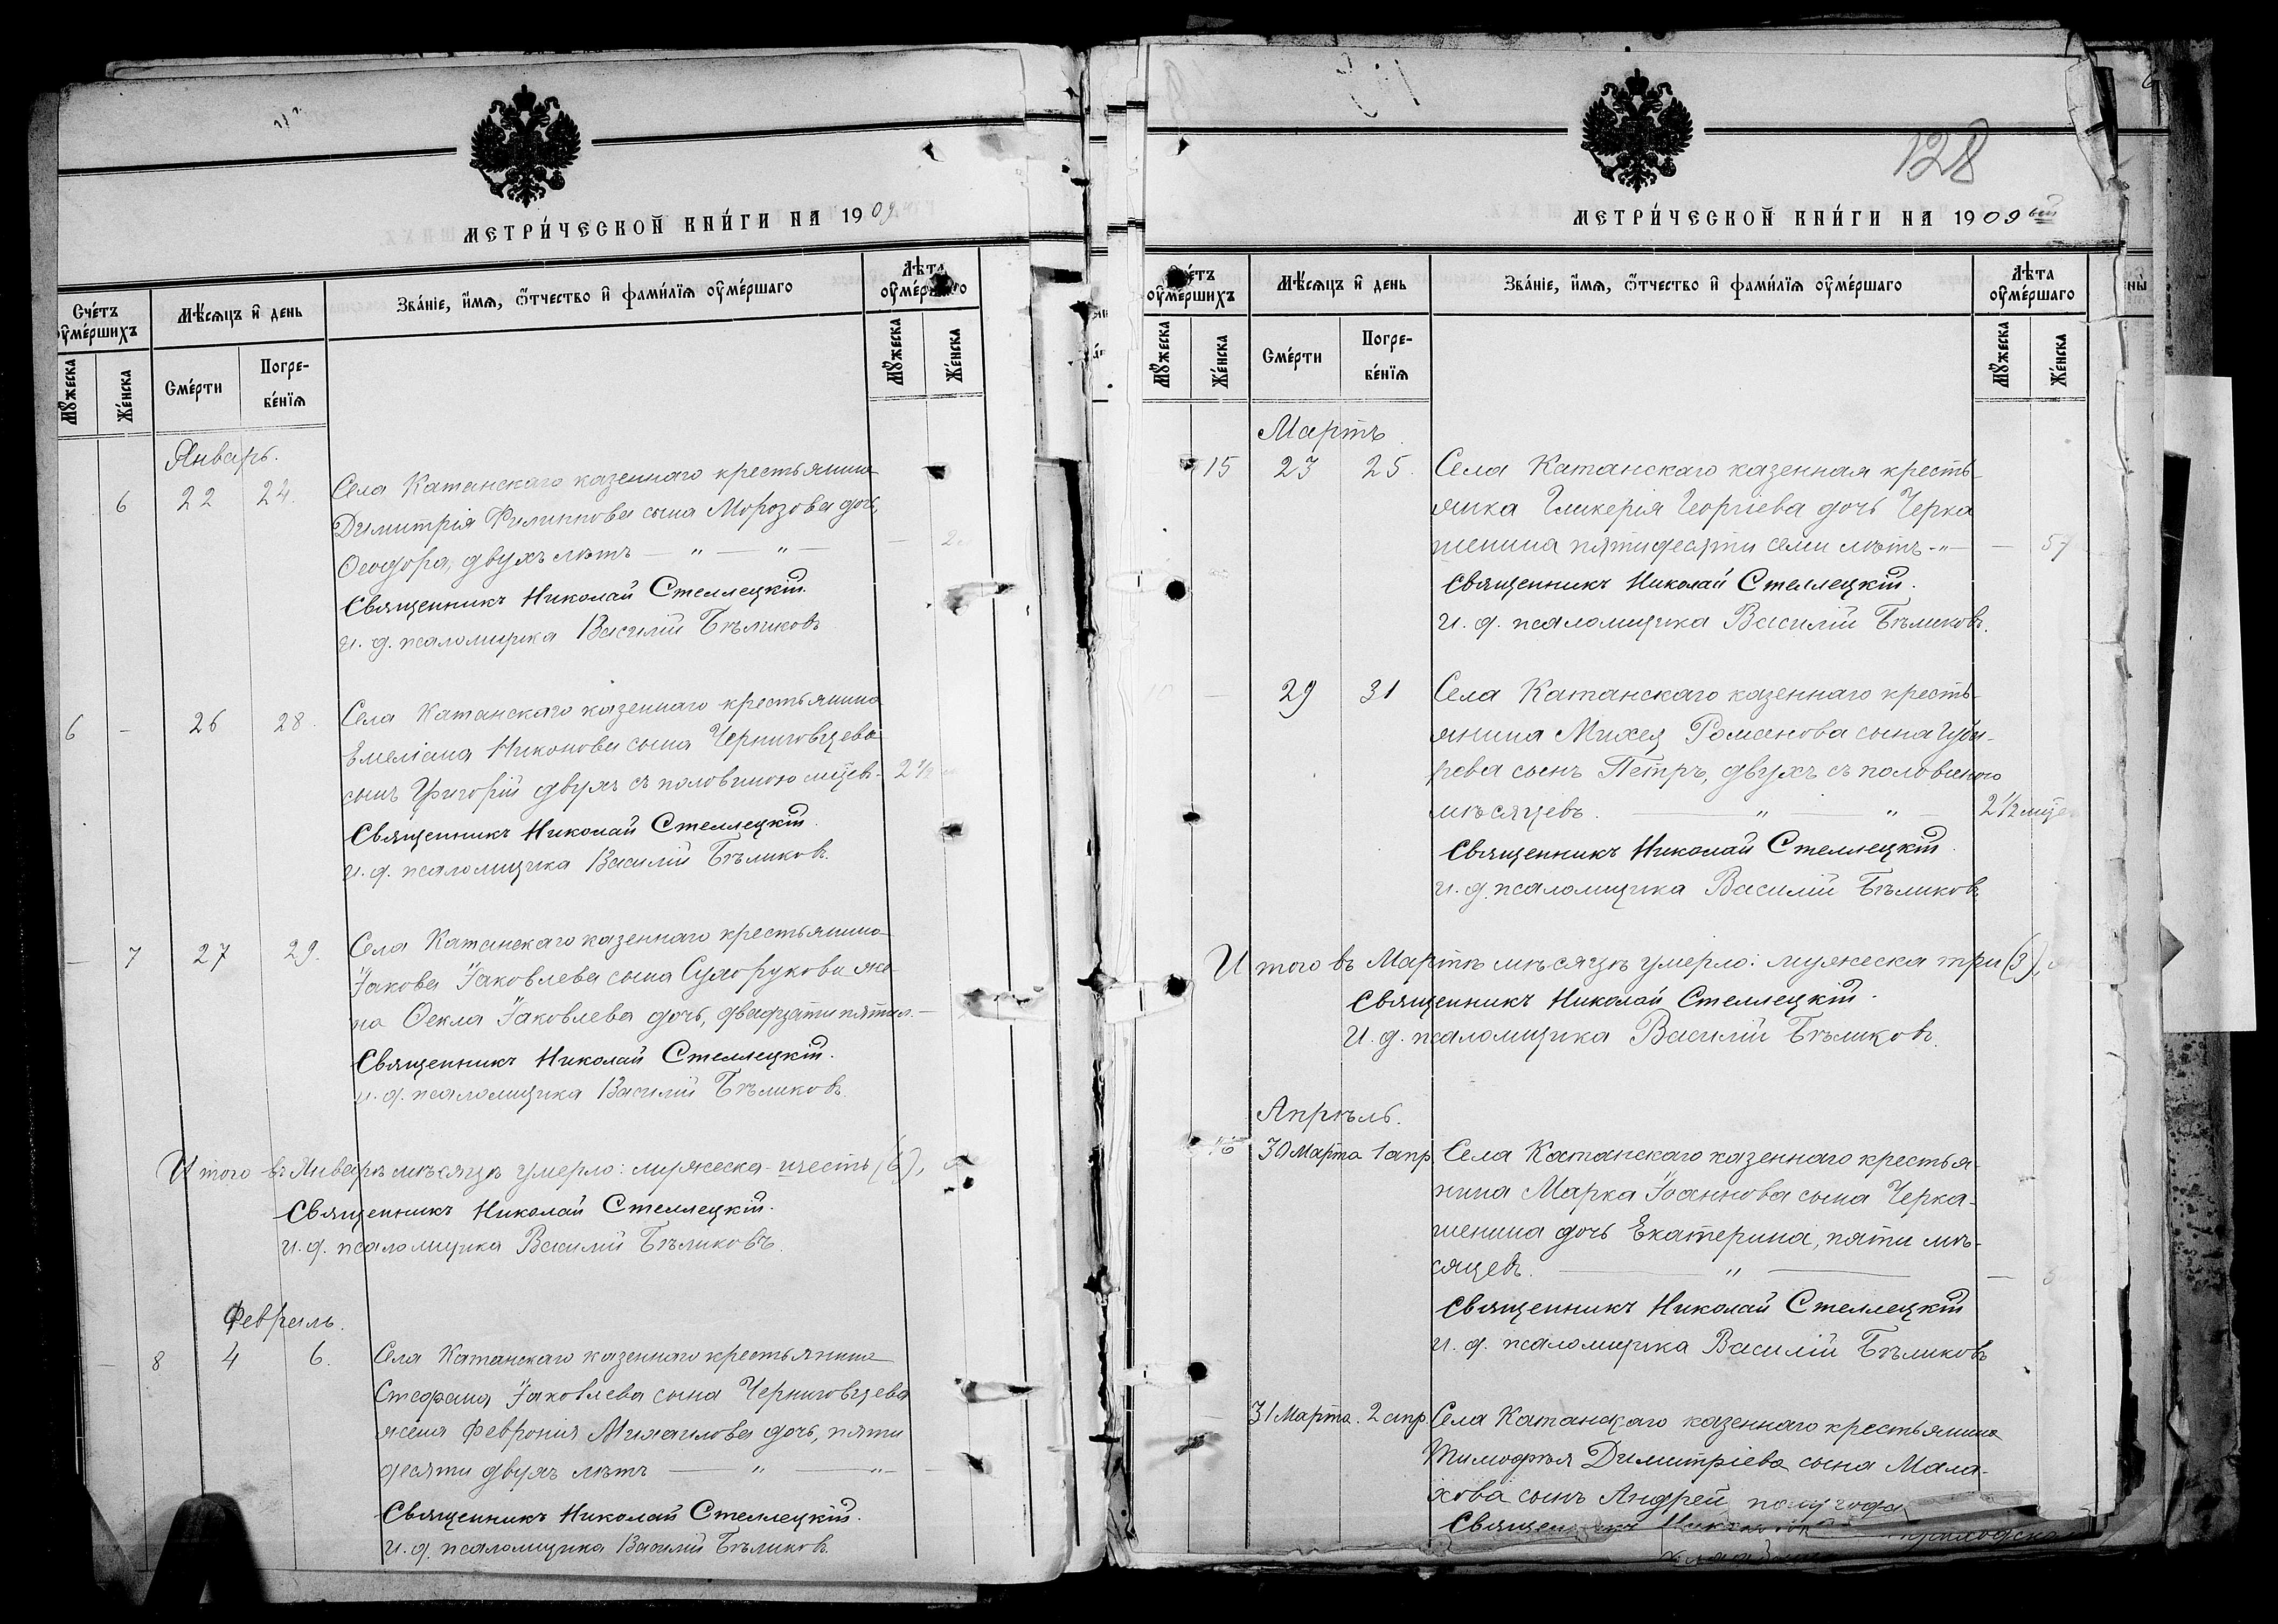 МЕТРИ́ЧЕСКОЙ КНИ́ГИ НА 1909
Сче́тъ оумершихъ
Мѣсяцъ и день
Зва́ніе, и́мя, о́тчество и фами́лія оуме́ршаго
Лѣта оуме́ршаго
Мужеска
Же́нска
Сме́рти
Погребе́нія
Мужеска
Же́нска
Январь.
6 22 24. Села Катанскаго казеннаго крестьянина
Димитрія Филиппова сына Морозова дочь
Ѳеодора, двухъ лѣтъ — „ — „ — — 2
Священникъ Николай Стеллецкій.
И. д. псаломщика Василій Бѣликовъ
6 - 26 28. Села Катанскаго казеннаго крестьянина
Емеліана Никонова сына Черниговцева
сынъ Григорій двухъ съ половиною мцевъ- 2 1/2
Священникъ Николай Стеллецкій.
И. д. псаломщика Василій Бѣликовъ.
— 7 27 29. Села Катанскаго казеннаго крестьянина
Іакова Іаковлева сына Сухорукова же-
на Ѳекла Іаковлева дочь, двадцати пяти л. —
Священникъ Николай Стеллецкій.
И. д. псаломщика Василій Бѣликовъ.
Итого въ Январѣ мѣсяцѣ умерло: мужеска - шесть (6),
Священникъ Николай Стеллецкій.
И. д. псаломщика Василій Бѣликовъ.
Февраль.
— 8 4 6. Села Катанскаго казеннаго крестьянина
Стефана Іаковлева сына Черниговцева
жена Феврония Михаилова дочь, пяти
десяти двухъ лѣтъ — „ — „ —
Священникъ Николай Стеллецкій.
И. д. псаломщика Василій Бѣликовъ.
128
МЕТРИ́ЧЕСКОЙ КНИ́ГИ НА 1909
Сче́тъ оуме́ршихъ
Мѣсяцъ и день
Зва́ніе, и́мя, о́тчество и фами́лія оуме́ршаго
Лѣта оуме́ршаго
Мужеска
Же́нска
Сме́рти
Погребе́нія
Мужеска
Же́нска
Мартъ.
15 23 25. Села Катанскаго казенная кресть-
янка Гликерія Георгіева дочь Черка
шенина пятидесяти семи лѣтъ -„- — 57
Священникъ Николай Стеллецкій.
И. д. псаломщика Василій Бѣликовъ.
10 — 29 31 Села Катанскаго казеннаго кресть-
янина Михея Романова сына Губа-
рева сынъ Петръ, двухъ съ половиною
мѣсяцевъ. — „ — „ — 2 1/2 мце
Священникъ Николай Стеллецкій.
И. д. псаломщика Василій Бѣликовъ
Итого въ Мартѣ мѣсяцѣ умерло: мужеска три (3),
Священникъ Николай Стеллецкій.
И. д. псаломщика Василій Бѣликовъ.
Апрѣль.
16 30 Марта 1 апр. Села Катанскаго казеннаго крестья-
нина Марка Іоаннова сына Черка-
шенина дочь Екатерина, пяти мѣ-
сяцевъ. — „ — — 5
Священникъ Николай Стеллецкій
И. д. псаломщика Василій Бѣликовъ
31 Марта. 2 апр. Села Катанскаго казеннаго крестьянина
Тимофѣя Димитріева сына Мала-
хова сынъ Андрей полугода
Священникъ